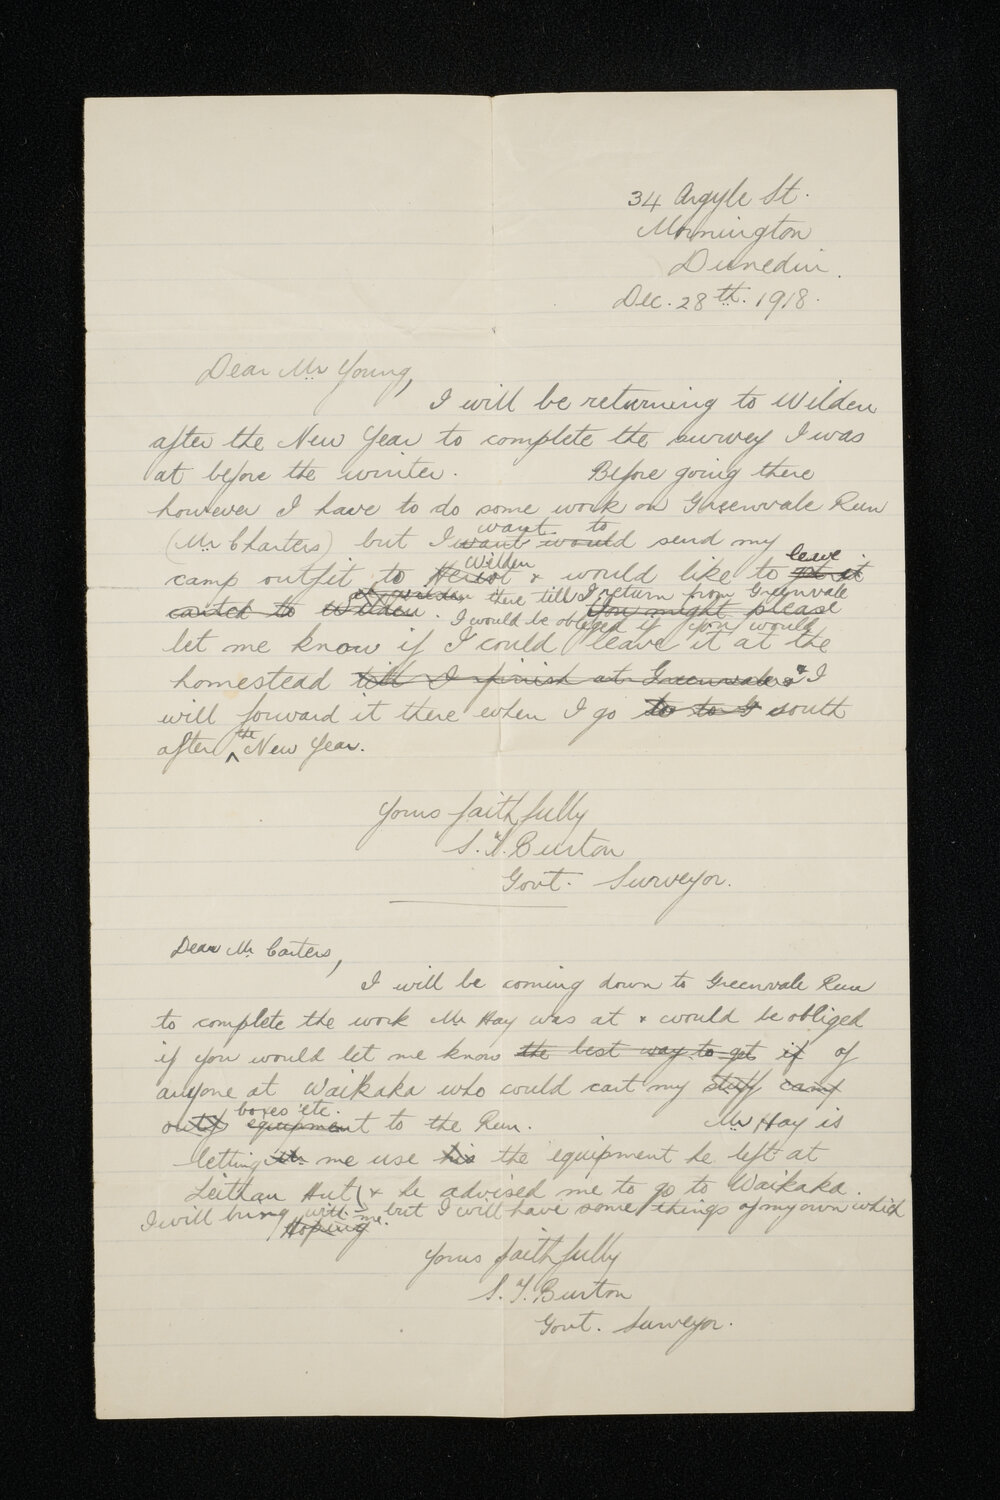 34 Argyle St.
Mornington
Dunedin.
Dec. 28th. 1918.
Dear Mr Young,
I will be returning to Wilden
after the New Year to complete the survey I was
at before the winter. Before going there
however I have to do some work on Greenvale Run
want to
(Mr Charters) but I want would send my
Wilden leave
camp outfit to Heriot & would like to get it
at Wilden there till I return from Greenvale
carted to Wilden. You might please
I would be obliged if you would
let me know if I could leave it at the
homestead till I finish at Greenvale & I
will forward it there when I go to to G south
the
after ^ New Year.
Yours faithfully
S. T. Burton
Govt. Surveyor.
Dear Mr Carters,
I will be coming down to Greenvale Run
to complete the work Mr Hay was at & would be obliged
if you would let me know the best way to get if of
anyone at Waikaka who could cart my stuff camp
boxes etc.
outf equipment to the Run. Mr Hay is
letting me use his the equipment he left at
Leithan Hut & he advised me to go to Waikaka.
but I will have some things of my own which
I will bring with me.
Hoping
Yours faithfully
S. T. Burton
Govt. Surveyor.